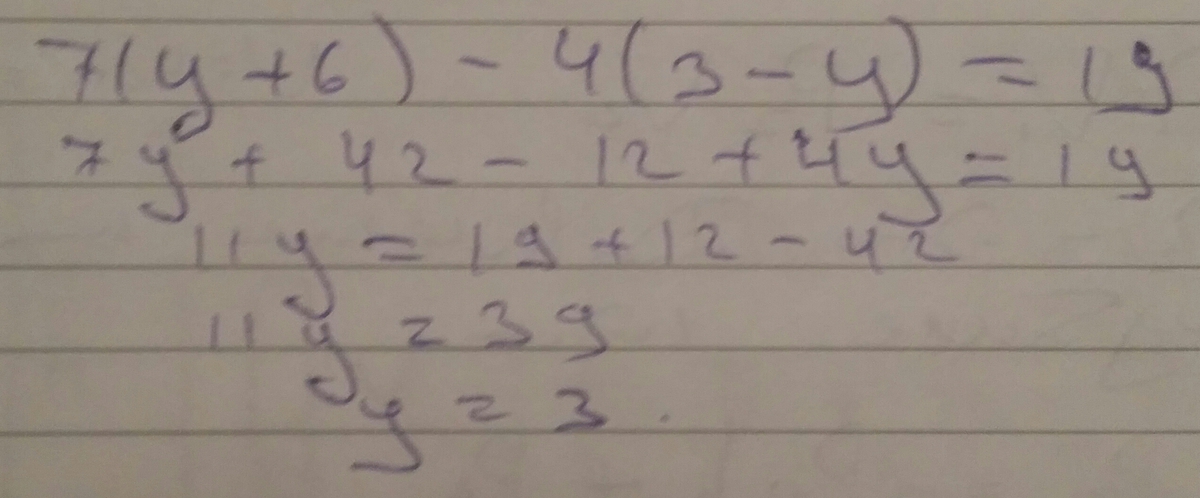 7(y+6) - 4(3-y) = 19
7y + 42 - 12 + 4y = 19
11y = 19 + 12 - 42
11y = 39
y = 3.